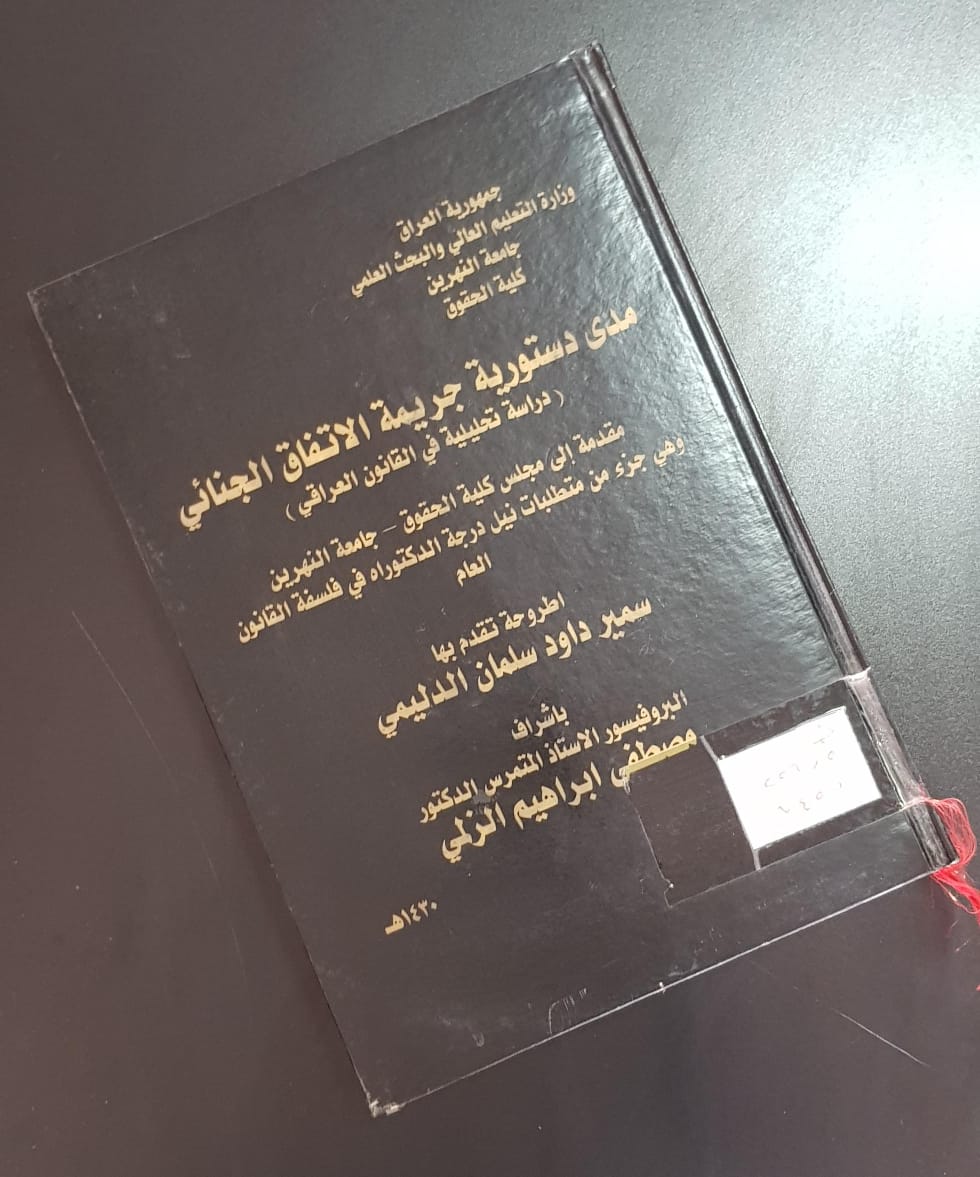 جمهورية العراق
وزارة التعليم العالي والبحث العلمي
جامعة النهرين
كلية الحقوق
مدى دستورية جريمة الاتفاق الجنائي
( دراسة تحليلية في القانون العراقي )
مقدمة إلى مجلس كلية الحقوق – جامعة النهرين
وهي جزء من متطلبات نيل درجة الدكتوراه في فلسفة القانون
العام
اطروحة تقدم بها
سمير داود سلمان الدليمي
باشراف
البروفيسور الاستاذ المتمرس الدكتور
مصطفى ابراهيم الزلمي
١٤٣٠هـ